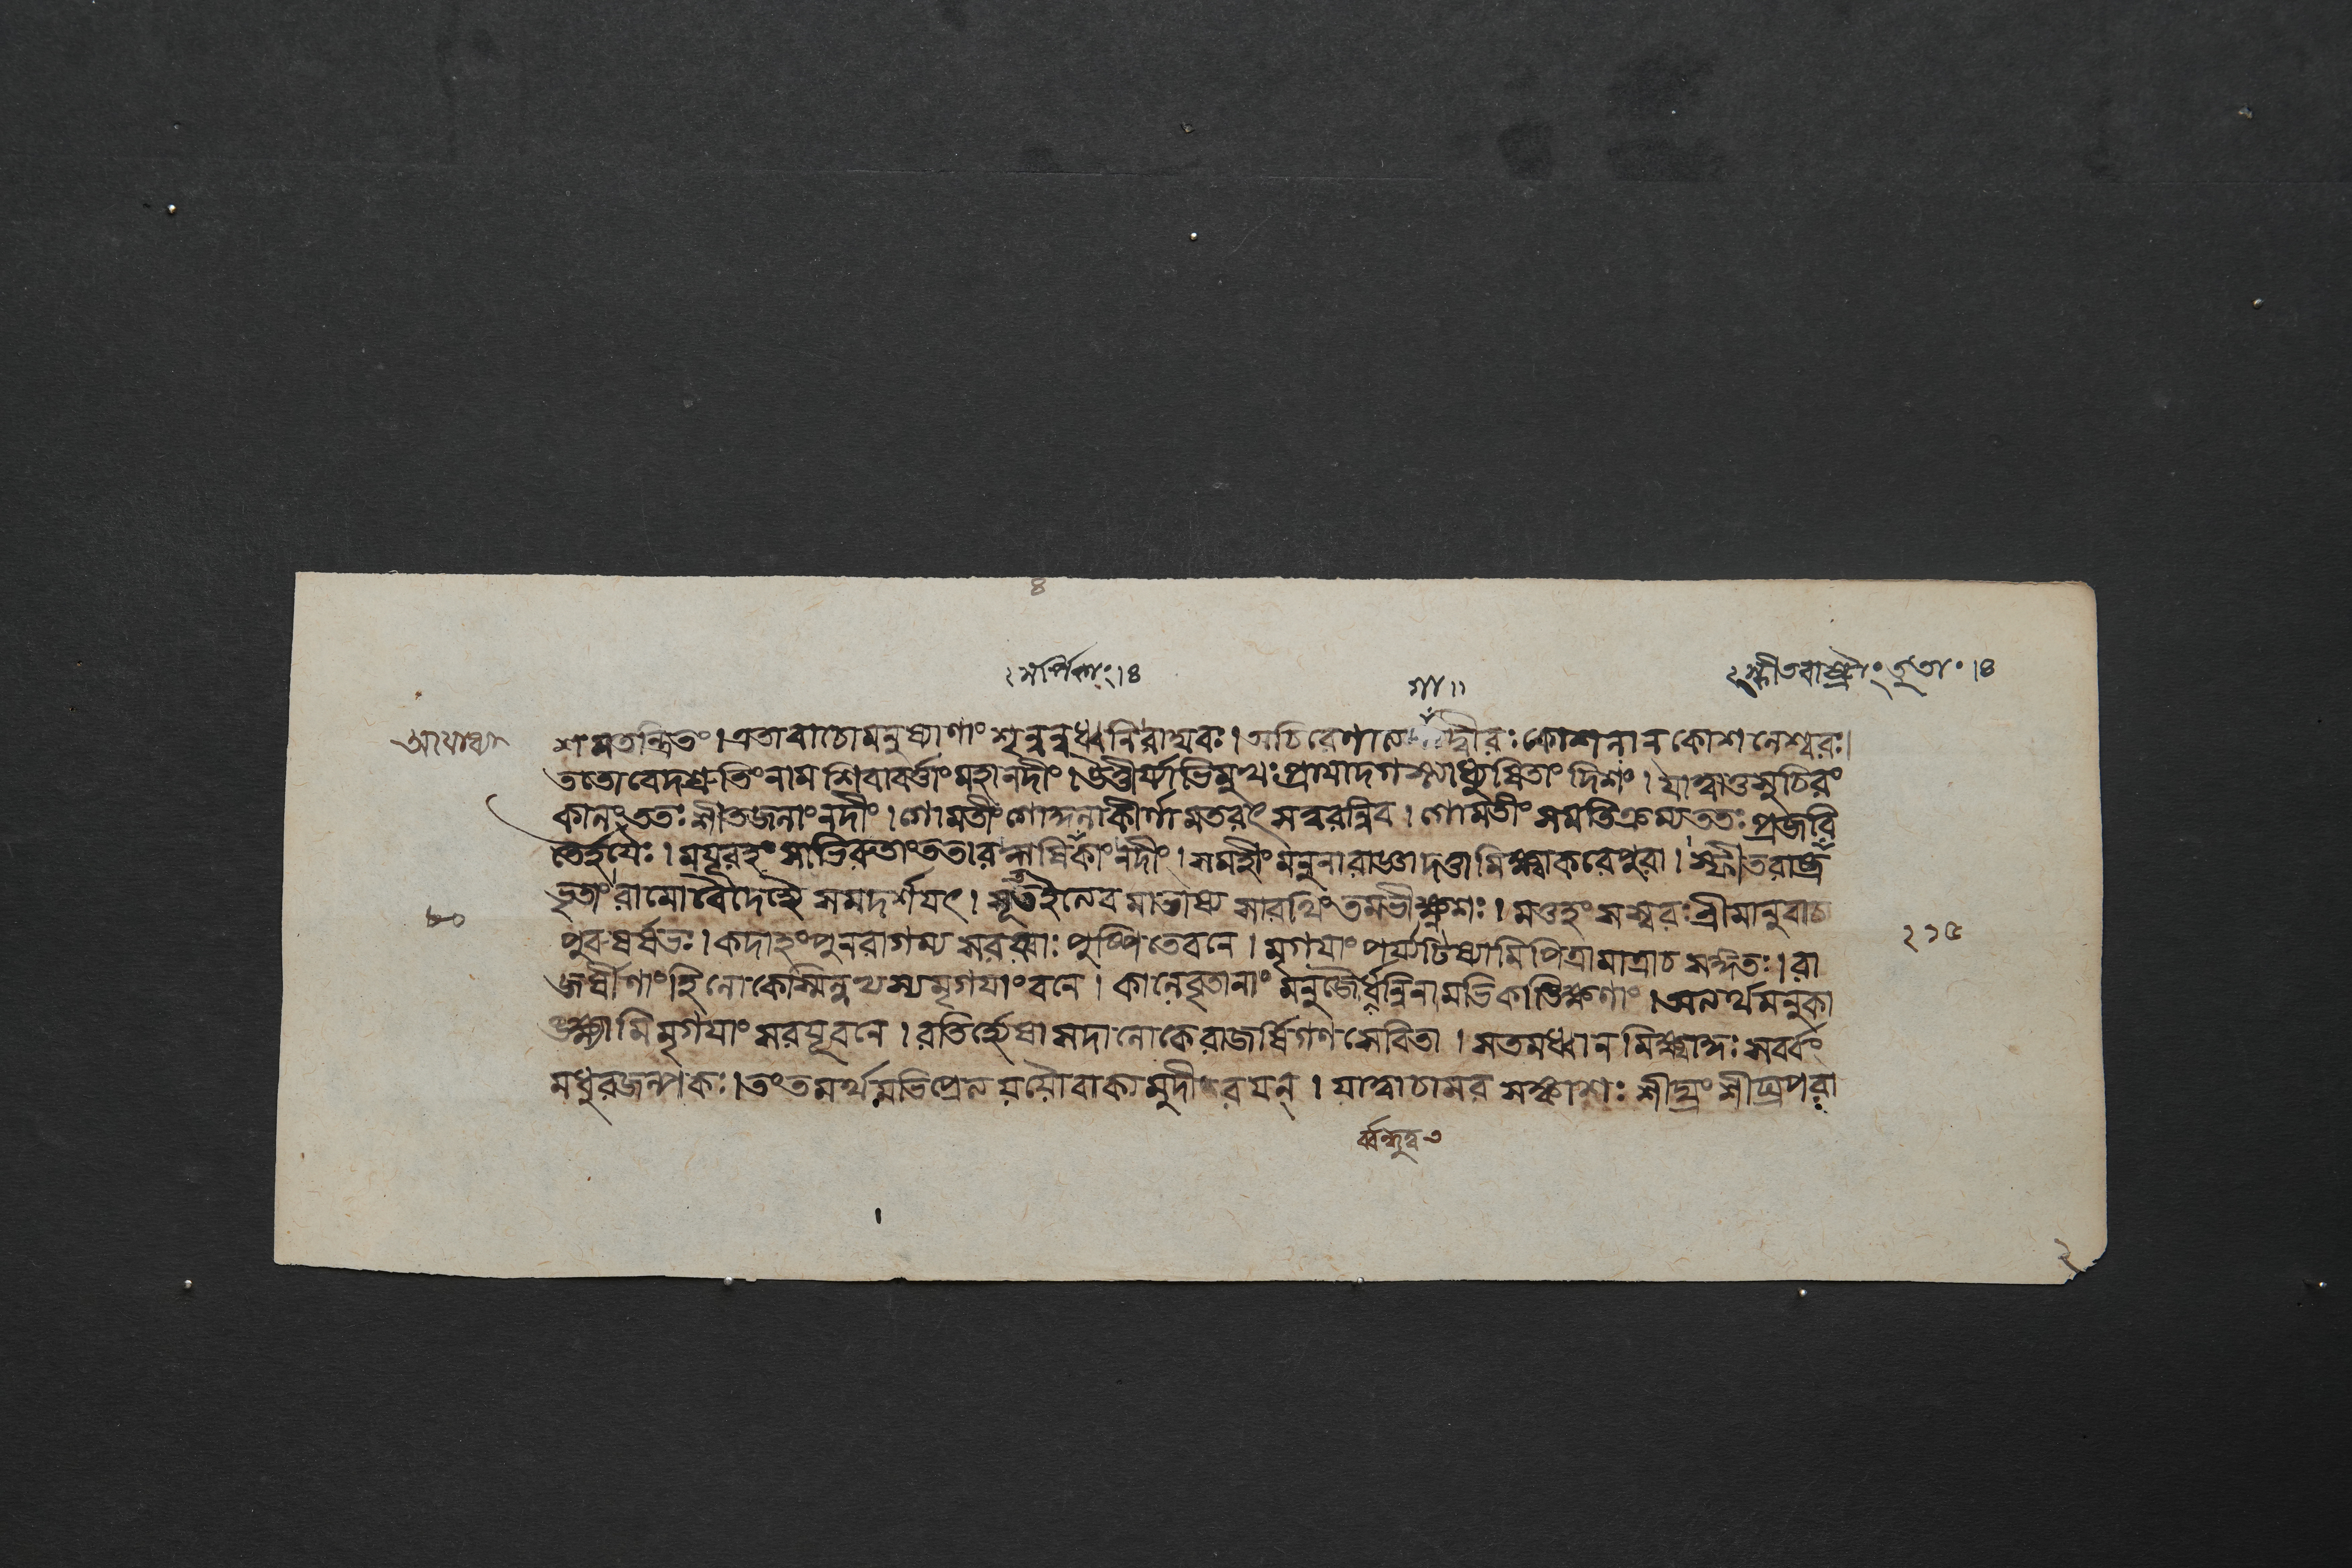 ৪
২ সর্পিকাং।৪
গা॥
২ স্ফীতরাষ্ট্রাং বৃতাং।৪
অযোধ্যা
শামতন্দ্রিতং। এতাবাচোমনুষ্যাণাং শৃন্বন্নধ্বনিরাঘবঃ। অচিরেণান দ্বীরঃ কোশলান কোশলেশ্বরঃ।
ততোবেদশ্রুতিংনাম শিবাবর্ত্তাংমহানদীং। উত্তীর্য্যাভিমুখঃ প্রাযাদগস্ত্যাধ্যুষিতাং দিশং। যাত্বাতুসুচিরং
কালং ততঃ শীতজলাংনদীং। গোমতীং গোকুলাকীর্ণামতরৎ সত্বরন্নিব। গোমতীং সমতিক্রম্য ততঃ প্রজবি
তৈর্হযৈঃ। ময়ূরহংসাভিরুতাংততার সর্পিকাং নদীং। সমহীং মনুনারাজ্ঞাদত্তামিক্ষ্বাকবেপুরা। স্ফীতরাষ্ট্র
বৃতাং রামোবৈদেহ্যৈ সমদর্শযৎ। সূতইত্যেবমাভাষ্য সারথিং তমভীক্ষ্ণশঃ। মত্তহংসস্বরঃ শ্রীমানুবাচ
৮০
পুরুষর্ষভঃ। কদাহংপুনরাগম্য সরয্বাঃ পুষ্পিতেবনে। মৃগযাং পর্য্যটিষ্যামি পিত্রামাত্রাচ সঙ্গতঃ। রা
২১৫
জর্ষীণাংহি লোকেস্মিন্নত্যম্যমৃগযাংবনে। কালেবৃতানাং মনুজৈর্ধন্বিনামভিকাঙ্ক্ষিণাং। অনর্থমনুকা
ঙ্ক্ষামি মৃগযাং সরযূবনে। রতির্হ্যেষা সদা লোকে রাজর্ষিগণ সেবিতা। সতমধ্বানমিক্ষ্বাকুঃ সর্ব্বং
মধুরজল্পকঃ। তংতমর্থমভিপ্রেত্য যযৌবাক্যমুদীরযন্। যাত্বাচামর সঙ্কাশঃ শীঘ্রং শীঘ্রপরা
২